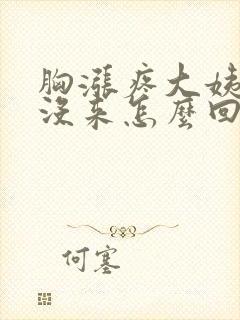 胸漲疼大姨
沒来怎麼回
何塞